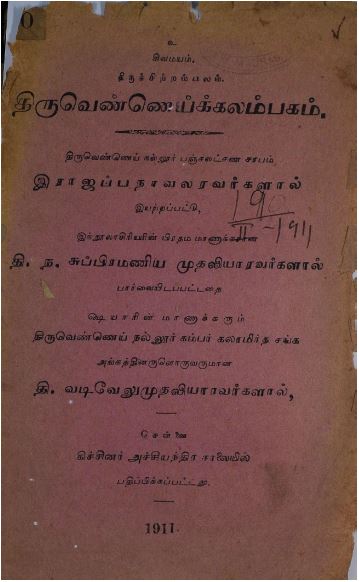 உ
சிவமயம்.
திருச்சிற்றம்பலம்.
திருவெண்ணெய்க்கலம்பகம்.
திருவெண்ணெய் நல்லூர் பஞ்சலட்சண சரபம்
இராஜப்பநாவலரவர்களால்
இயற்றப்பட்டு,
இந்நூலாசிரியரின் பிரதம மாணாக்கரான
தி. ந. சுப்பிரமணிய முதலியாரவர்களால்
பார்வையிடப்பட்டதை
ஷெயாரின் மாணாக்கரும்
திருவெண்ணெய் நல்லூர் கம்பர் கலாமிர்த சங்க
அங்கத்தினருளொருவருமான
தி. வடிவேலுமுதலியாரவர்களால்,
சென்னை
கிச்சினர் அச்சியந்திர சாலையில்
பதிப்பிக்கப்பட்டது.
1911.